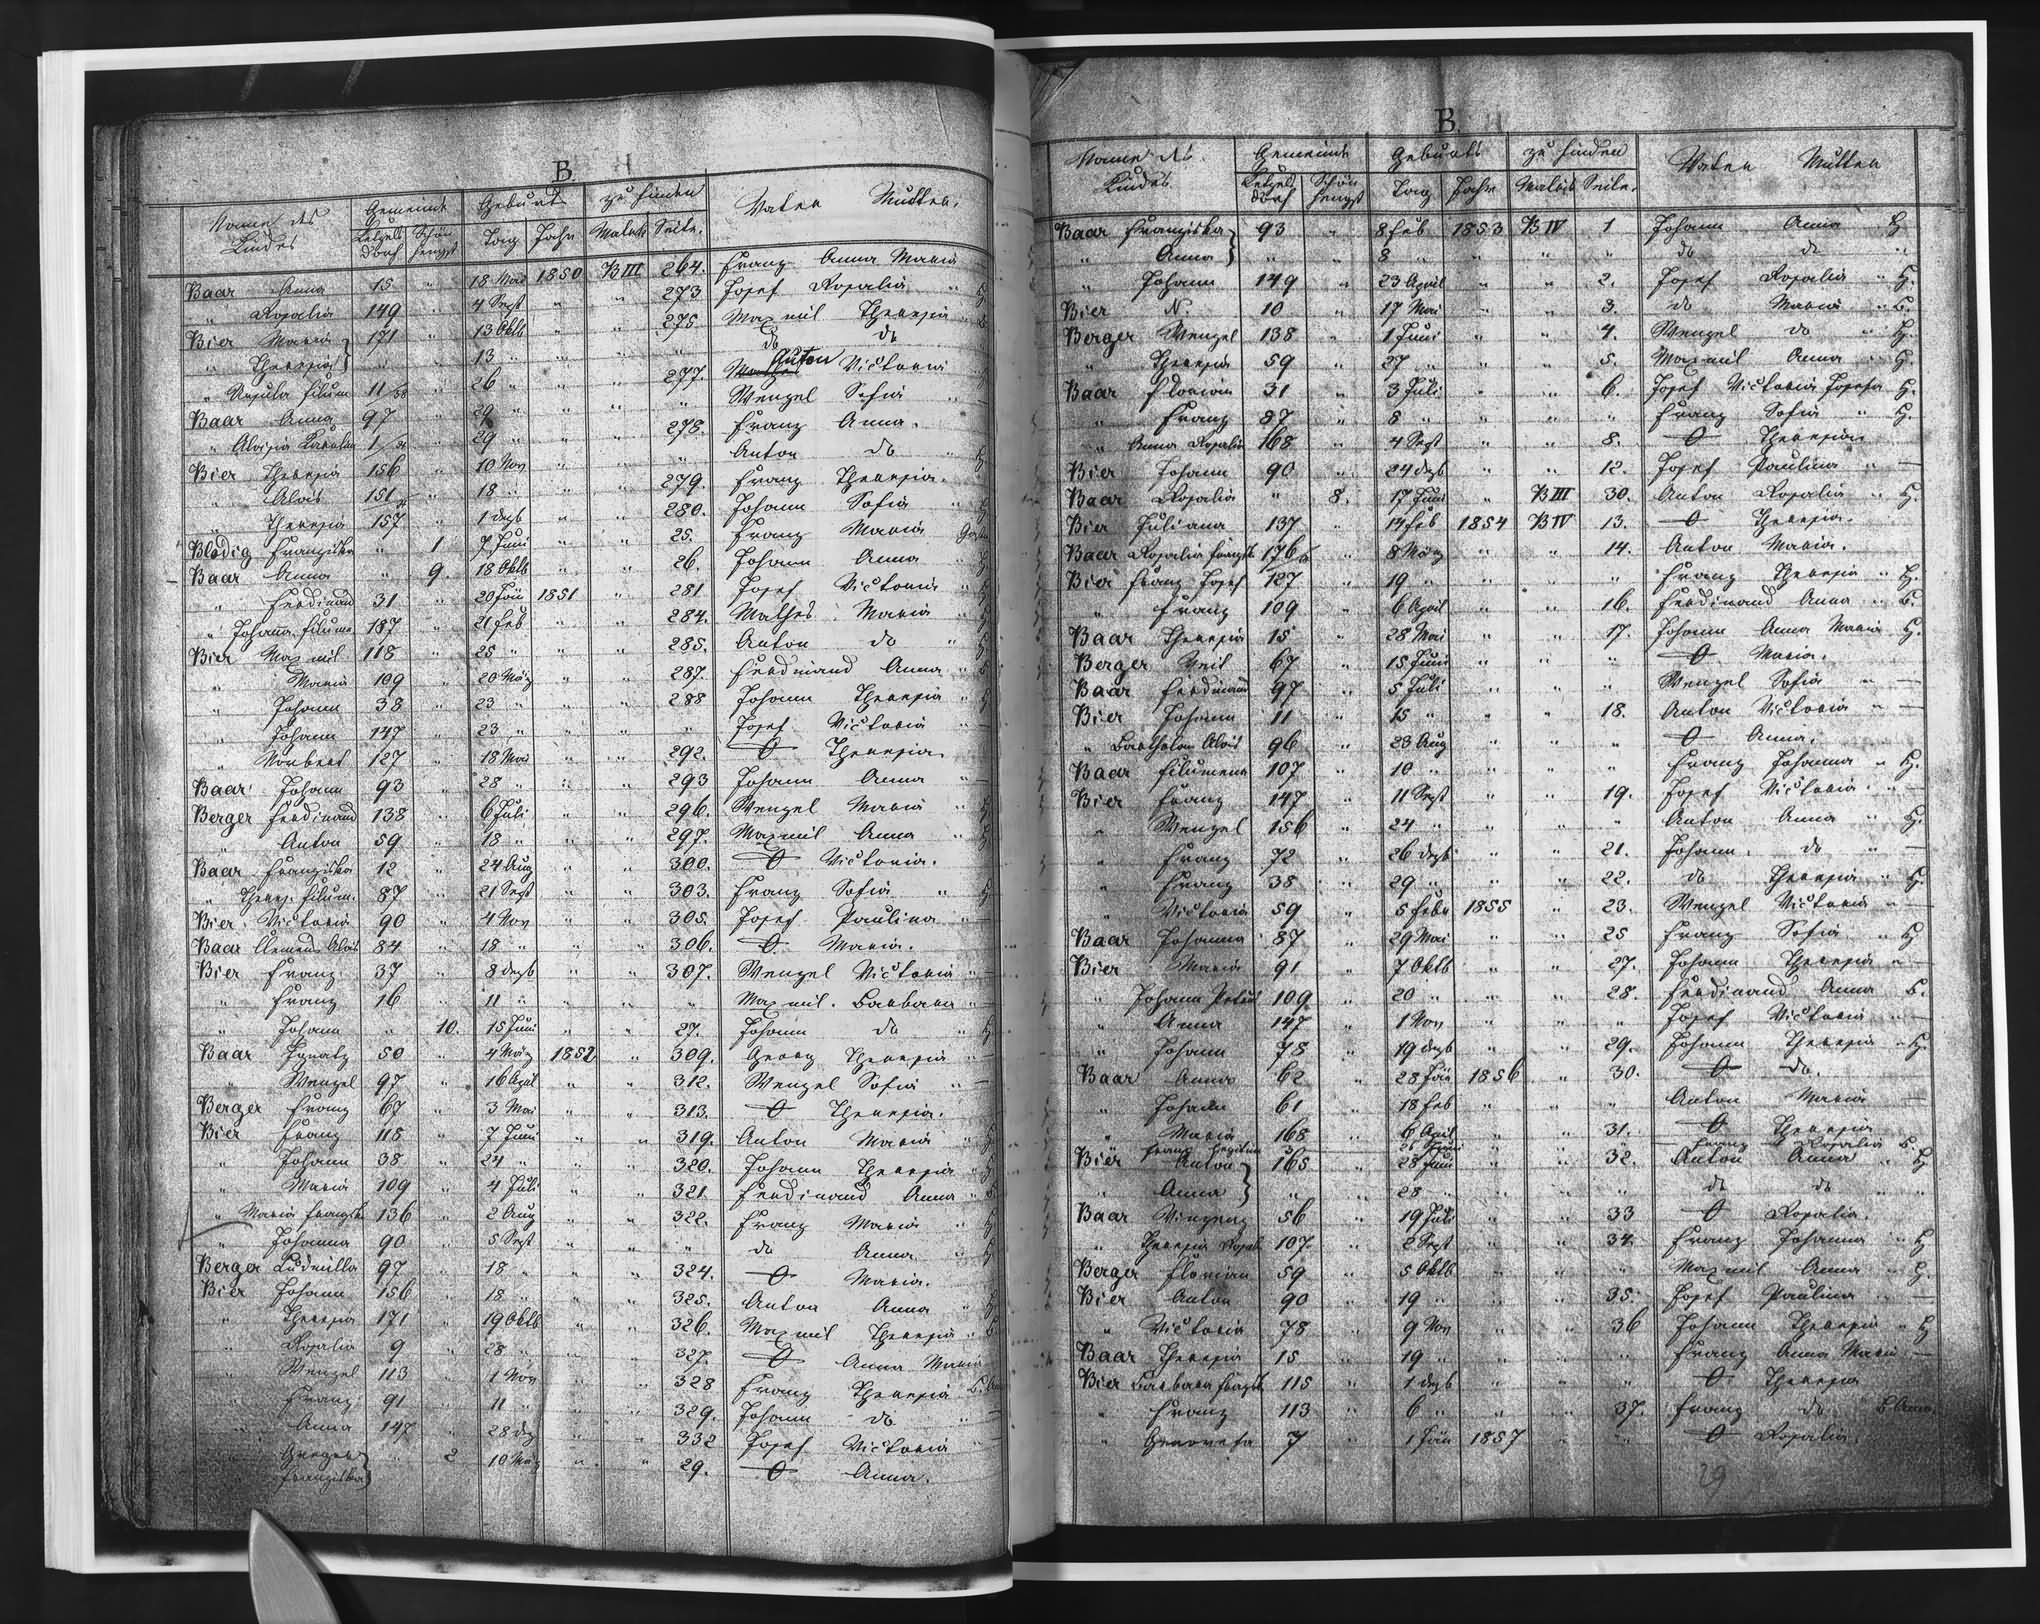 B.
Name des Kindes Gemeinde Geburts zu finden Vater Mutter.
Ketzels dorf Schön hengst Tag Jahr Matrik Seite.
Baar Anna 15 " 18 Mai 1850 B III 264. Franz Anna Maria
" Rosalia 149 " 4 Sept " " 273 Josef Rosalia " H
Bier Maria } 171 " 13 Oktb " " 275 Maxmil Theresia "
" Theresia } 13 " " " " do do
" Ursula Filum 11/58 " 26 " " " 277. Anton Victoria
Baar Anna 97 " 29 " " " " Wenzel Sofia "
" Aloisia Karolin 1/ " 29 " " " 278. Franz Anna.
Bier Theresia 156 " 10 Nov " " " Anton do " H
" Alois 151 " 18 " " " 279. Franz Theresia.
" Theresia 157 " 1 dezb " " 280. Johann Sofia " H
Blodig Franziska " 1 7 Juni " " 25. Franz Maria
Baar Anna " 9. 18 Oktb " " 26. Johann Anna " H
" Ferdinand 31 " 20 Jän 1851 " 281 Josef Victoria " H
" Johanna Filume 187 " 21 Feb " " 284. Mathes Maria " H
Bier Maxmil 118 " 25 " " " 285. Anton do " H
" Maria 109 " 20 März " " 287. Ferdinand Anna " B
" Johann 38 " 23 " " " 288 Johann Theresia " H
" Johann 147 " 23 " " " " Josef Victoria " —
" Norbert 127 " 18 Mai " " 292. O Theresia.
Baar Johann 93 " 28 " " " 293 Johann Anna " —
Berger Ferdinand 138 " 6 Juli " " 296. Wenzel Maria " H
" Anton 59 " 18 " " " 297. Maxmil Anna " H
Baar Franziska 12 " 24 Aug " " 300. O Victoria.
" Theres. Filum. 87 " 21 Sept " " 303. Franz Sofia " H
Bier Victoria 90 " 4 Nov " " 305. Josef Paulina " —
Baar Clemens Alois 84 " 18 " " " 306. O Maria.
Bier Franz 37 " 8 dezb " " 307. Wenzel Victoria " —
" Franz 16 " 11 " " " " Maxmil. Barbara " —
" Johann " 10. 15 Juni " " 27. Johann do " H
Baar Ignatz 50 " 4 März 1852 " 309. Georg Theresia " —
" Wenzel 97 " 16 April " " 312. Wenzel Sofia " —
Berger Franz 67 " 3 Mai " " 313. O Theresia.
Bier Franz 118 " 7 Juni " " 319. Anton Maria " H
" Johann 38 " 24 " " " 320. Johann Theresia " H
" Maria 109 " 4 Juli " " 321 Ferdinand Anna " B
" Maria Franzisk 136 " 2 Aug " " 322. Franz Maria " H
" Johanna 90 " 5 Sept " " " do Anna " H
Berger Ludmilla 97 " 18 " " " 324. O Maria.
Bier Johann 156 " 18 " " " 325. Anton Anna " H
" Theresia 171 " 19 Oktb " " 326. Maxmil Theresia " B
" Rosalia 9 " 28 " " " 327. O Anna Maria
" Wenzel 113 " 1 Nov " " 328 Franz Theresia B.
" Franz 91 " 11 " " " 329. Johann do " —
" Anna 147 " 28 dez " " 332 Josef Victoria "
" Franziska } " 2 10 März " " 29. O Anna.
B.
Name des Kindes Gemeinde Geburts zu finden Vater Mutter
Ketzels dorf Schön hengst Tag Jahr Matrik Seite.
Baar Franziska } 93 " 8 Feb 1853 B IV 1 Johann Anna " H
" Anna } " " 8 " " " " do do "
" Johann 149 " 23 April " " 2. Josef Rosalia " H.
Bier N. 10 " 17 Mai " " 3. do Maria " B.
Berger Wenzel 138 " 1 Juni " " 4. Wenzel do " H.
" Theresia 59 " 27 " " " 5. Maxmil Anna " H.
Baar Florian 31 " 3 Juli " " 6. Josef Victoria Josefa H.
" Franz 87 " 8 " " " " Franz Sofia " H.
" Anna Rosalia 168 " 4 Sept " " 8. O Theresia.
Bier Johann 90 " 24 dezb " " 12. Josef Paulina " —
Baar Rosalia " 8. 17 Juni " B III 30. Anton Rosalia " H.
Bier Juliana 137 " 14 Feb 1854 B IV 13. O Theresia.
Baar Rosalia Franzisk 176 " 8 März " " 14. Anton Maria.
Bier Franz Josef 127 " 19 " " " " Franz Theresia " H.
" Franz 109 " 6 April " " 16. Ferdinand Anna " B.
Baar Theresia 15 " 28 Mai " " 17. Johann Anna Maria H.
Berger Veit 67 " 15 Juni " " " O Maria.
Baar Ferdinand 97 " 5 Juli " " " Wenzel Sofia " —
Bier Johann 11 " 15 " " " 18. Anton Victoria " —
" Bartholom Alois 96 " 23 Aug " " " O Anna.
Baar Filumena 107 " 10 " " " " Franz Johanna " H.
Bier Franz 147 " 11 Sept " " 19. Josef Victoria " —
" Wenzel 156 " 24 " " " " Anton Anna " H.
" Franz 72 " 26 dezb " " 21. Johann do " —
" Franz 38 " 29 " " " 22. do Theresia " H.
" Victoria 59 " 5 Febr 1855 " 23. Wenzel Victoria " —
Baar Johanna 87 " 29 Mai " " 25 Franz Sofia " H
Bier Maria 91 " 7 Oktb " " 27. Johann Theresia " —
" Johann 109 " 20 " " " 28. Ferdinand Anna B.
" Anna 147 " 1 Nov " " " Josef Victoria " —
" Johann 78 " 19 dezb " " 29. Johann Theresia " H.
Baar Anna 62 " 28 Jän 1856 " 30. O do.
" Johann 61 " 18 Feb " " " Anton Maria —
" Maria 168 " 6 April " " 31. O Theresia
Franz 26 Juni Franz Rosalia B.
Bier Anton } 165 " 28 Juni " " 32. Anton Anna " H
" Anna } " " 28 " " " " do do "
Baar Vinzenz 56 " 19 Juli " " 33 O Rosalia.
" Theresia Rosal 107. " 2 Sept " " 34. Franz Johanna " H
Berger Florian 59 " 5 Oktb " " " Maxmil Anna " H.
Bier Anton 90 " 19 " " " 35. Josef Paulina " —
" Victoria 78 " 9 Nov " " 36 Johann Theresia " H
Baar Theresia 15 " 19 " " " " Franz Anna Maria —
Bier Barbara Franzisk 115 " 1 dezb " " " O Theresia
" Franz 113 " 6 " " " 37. Franz do B.
" Genovefa 7 " 1 Jän 1857 " " O Rosalia.
29